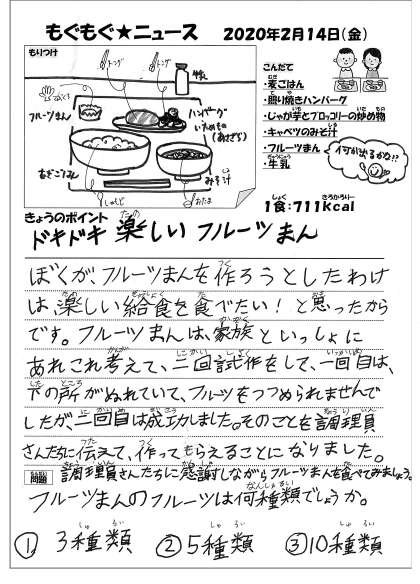 もぐもぐ★ニュース 2020年2月14日(金)
もりつけ
トング
トング
牛乳
フルーツまん
ハンバーグ
いためもの
(あさざら)
むぎごはん
みそ汁
しゃもじ
おたま
こんだて
・麦ごはん
・照り焼きハンバーグ
・じゃが芋とブロッコリーの炒め物
・キャベツのみそ汁
・フルーツまん
・牛乳
イ可が出るかな??
1食:711kcal
きょうのポイント
ドキドキ 楽しい フルーツまん
ぼくが、フルーツまんを作ろうとしたわけ
は、楽しい給食を食べたい!と思ったから
です。フルーツまんは、家族といっしょに
あれこれ考えて、二回試作をして、一回目は、
下の所がぬれていて、フルーツをつつめられませんで
したが、二回目は成功しました。そのことを調理員
さんたちに伝えて、作ってもらえることになりました。
問題 調理員さんたちに感謝しながらフルーツまんを食べてみましょう。
フルーツまんのフルーツは何種類でしょうか。
① 3種類 ② 5種類 ③ 10種類